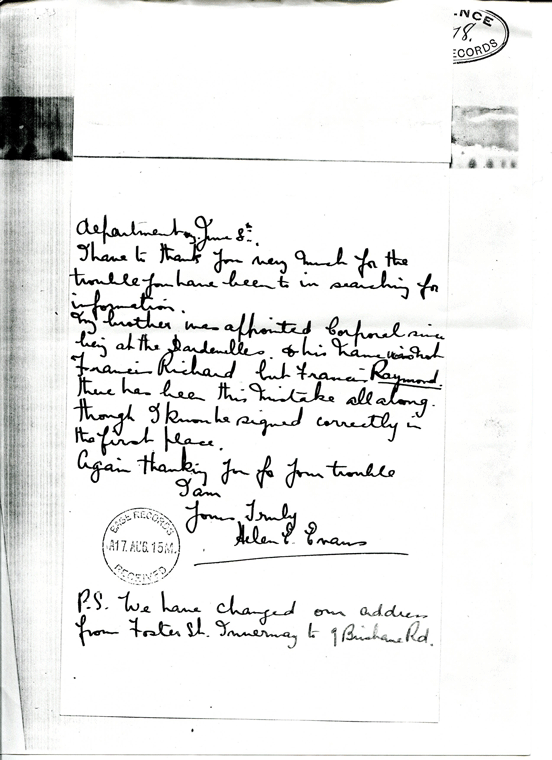 NCE
78.
ECORDS
department on June 8th.
I have to thank you very much for the
trouble you have been to in searching for
information.
My brother was appointed Corporal since
being at the Dardenelles. & his name was not
Francis Richard but Francis Raymond.
there has been this mistake all along.
though I know he signed correctly in
the first place.
Again thanking you for your trouble
I am
Yours Truly
Helen E. Evans
BASE RECORDS
A17 AUG. 15M.
RECEIVED
P.S. We have changed our address
from Foster St. to 9 Brisbane Rd.